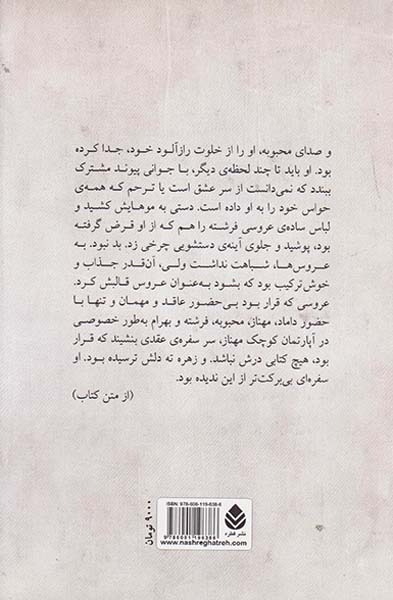 و صدای محبوبه، او را از خلوت رازآلود خود، جدا کرده
بود. او باید تا چند لحظه‌ی دیگر، با جوانی پیوند مشترک
ببندد که نمی‌دانست از سر عشق است یا ترحم که همه‌ی
حواس خود را به او داده است. دستی به موهایش کشید و
لباس ساده‌ی عروسی فرشته را هم که از او قرض گرفته
بود، پوشید و جلوی آینه‌ی دستشویی چرخی زد. بد نبود. به
عروس‌ها، شباهت نداشت ولی، آن‌قدر جذاب و
خوش‌ترکیب بود که بشود به‌عنوان عروس قالبش کرد.
عروسی که قرار بود بی‌حضور عاقد و مهمان و تنها با
حضور داماد، مهناز، محبوبه، فرشته و بهرام به‌طور خصوصی
در آپارتمان کوچک مهناز، سر سفره‌ی عقدی بنشیند که قرار
بود، هیچ کتابی درش نباشد. و زهره ته دلش ترسیده بود. او
سفره‌ای بی‌برکت‌تر از این ندیده بود.
(از متن کتاب)
۹۰۰۰ تومان
نشر قطره
www.nashreghatreh.com